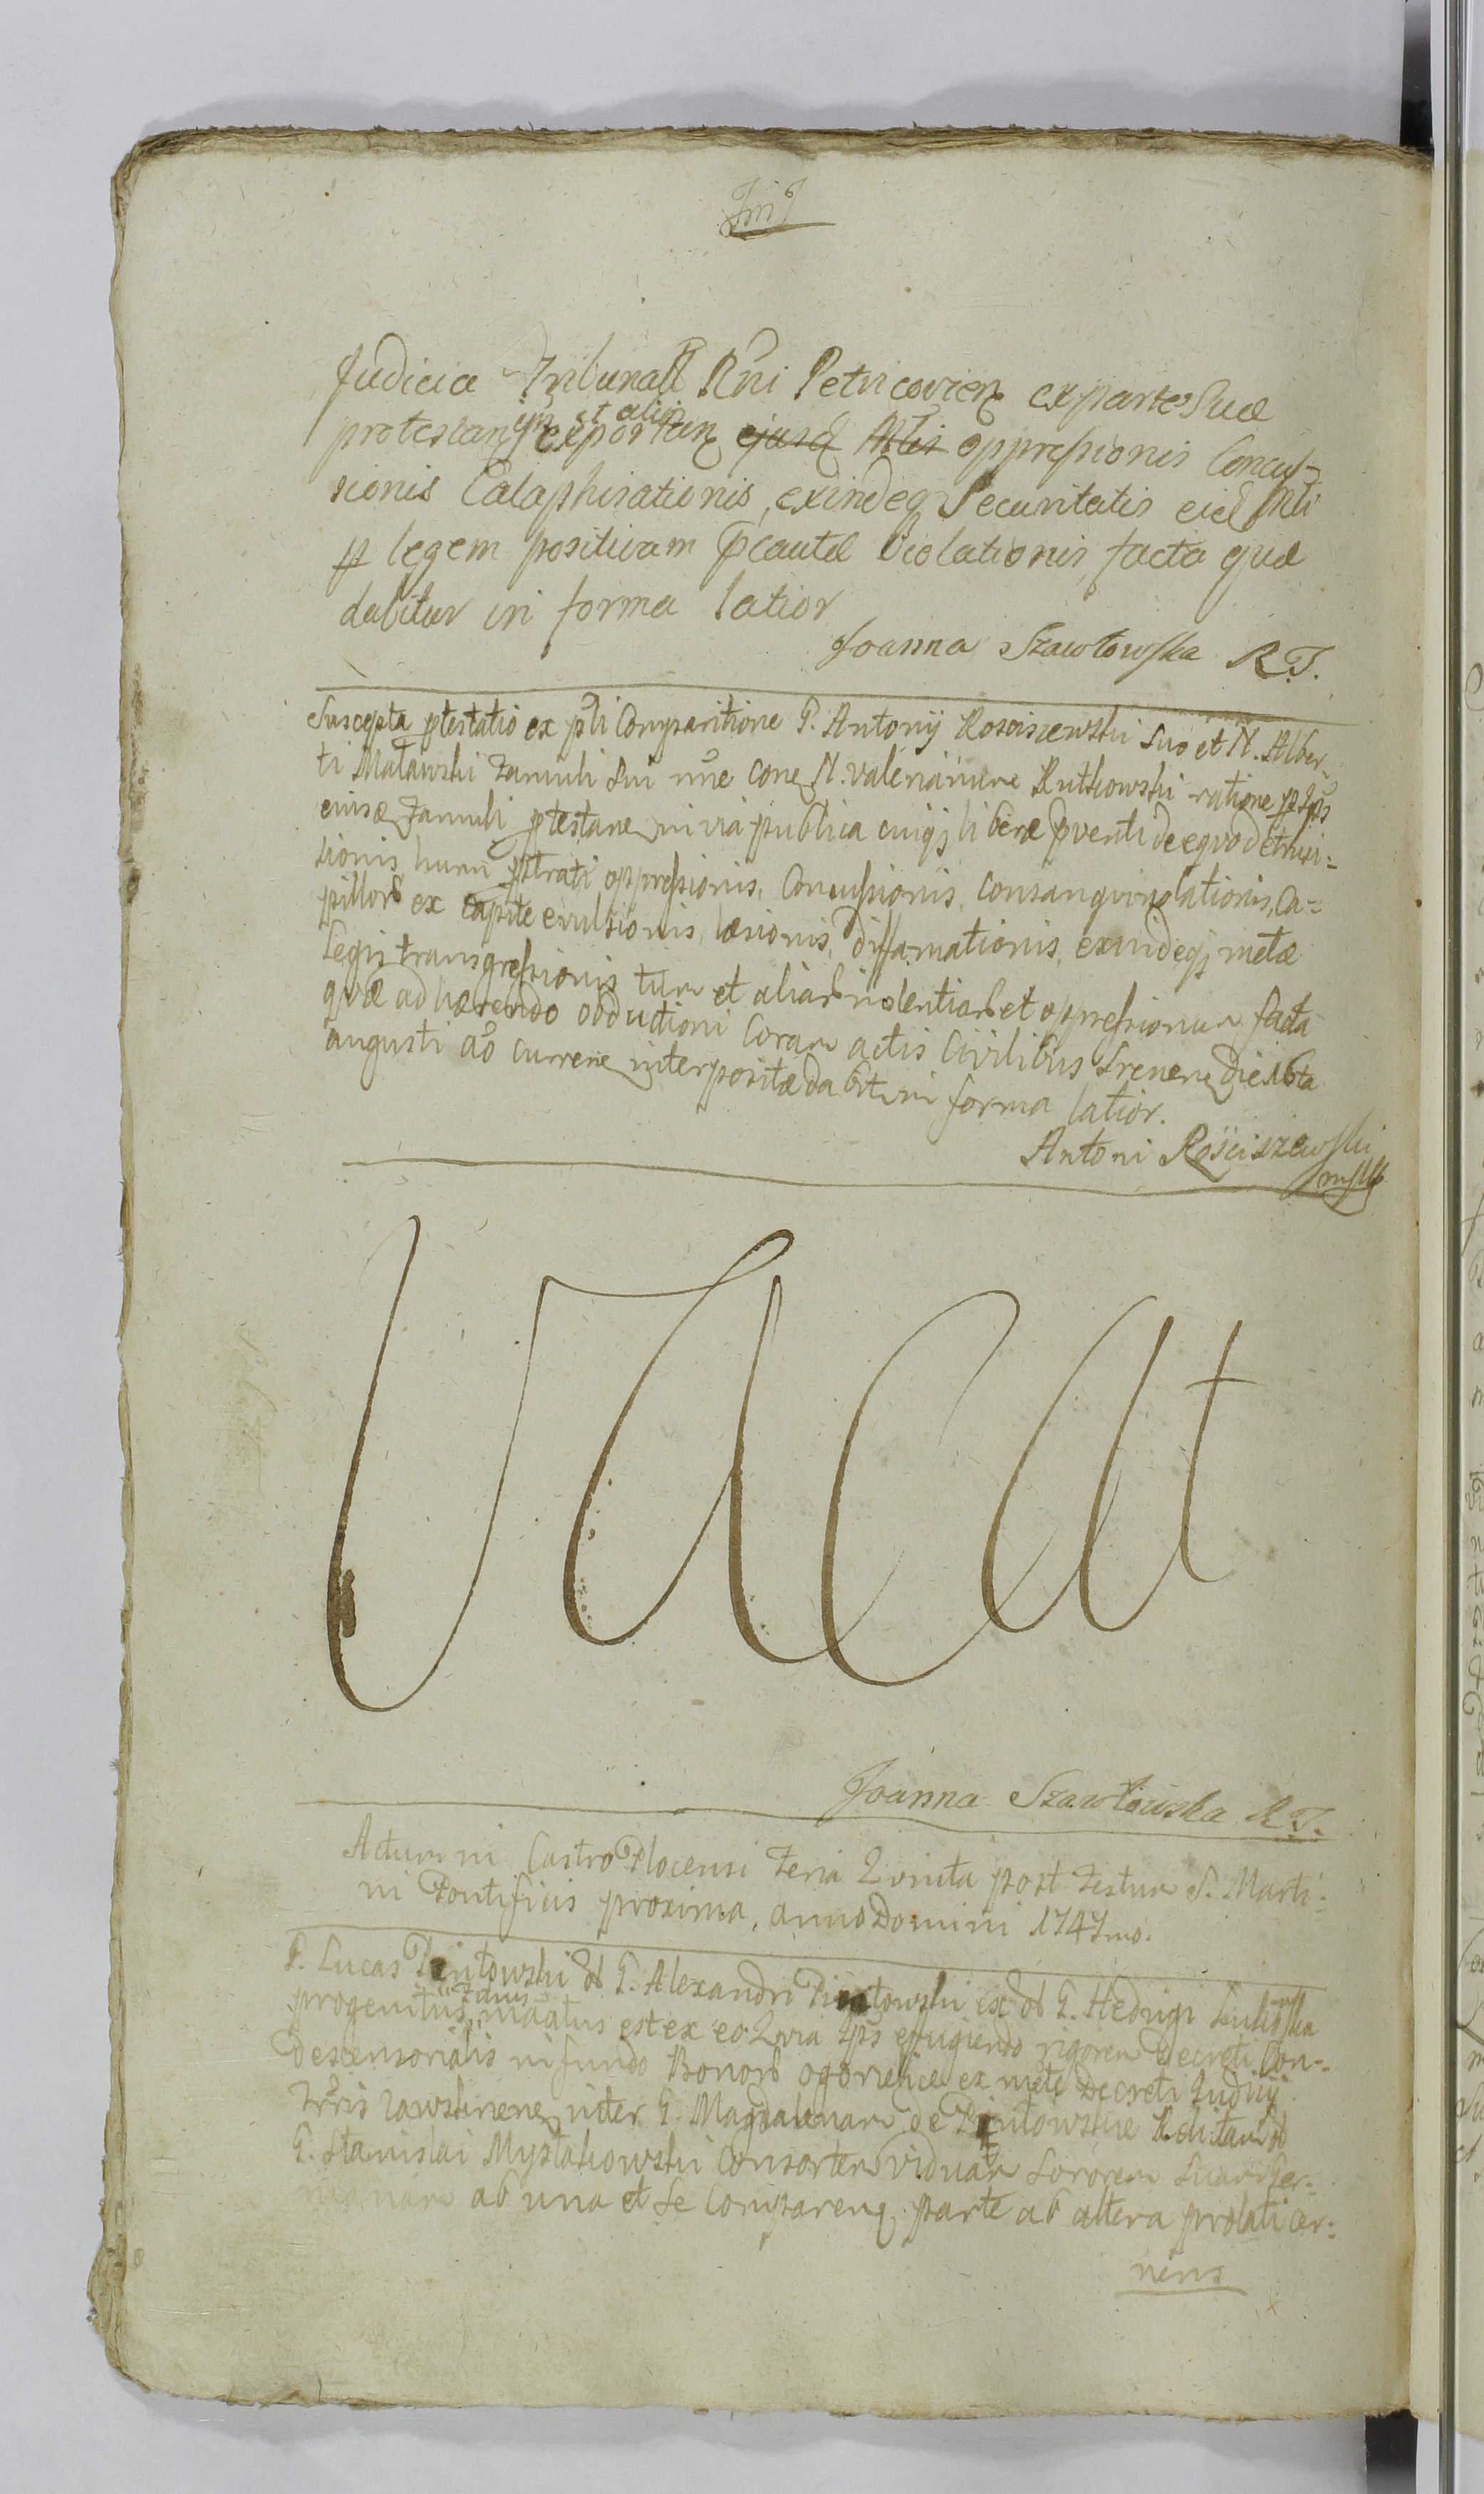 Judicia Tribunalᵗ Rni Petricovien ex parte Suæ
protestan in et alior expostan ejusd Mtis oppressionis Concus-
sionis Calaphisationis, exindeq Securitatis eid Mti
p legem positivam pcautæ Violationis, facta quæ
dabitur in forma latior
Joanna Szawłowska RT.
Suscepta ptestatio ex psti Comparitione G. Antonij Rosciszewski Suo et N. Alber-
ti Maławski Famuli Sui nne cone N. Valerianum Rutkowski ratione p Ips
eiusd Famuli ptestane in via publica cuiqj liberæ pventi de equo detrusi=
sionis humi pstrati oppressionis, Concussionis, consangvinolationis, Ca=
pillorū ex capite evulsionis, læsionis, diffamationis, exindeqj metæ
Legis transgressionis tum et aliarū violentiarū et oppressionum facta
quæ adhærendo obductioni Coram actis Civilibus Srenen die 16ta
augusti aō curren interpositæ dabit in forma latior.
Antoni Rościszewski
mpp
Vacat
Joanna Szawłowska RT.
Actum in Castro Plocensi Feria Quinta post Festum S. Marti-
ni Pontificis proxima, anno Domini 1747mo.
G. Lucas Piontowski ol G. Alexandri Piontowski ex ol G. Hedvigi
progenitus Filius, est ex eo Quia Ips effugiendo rigorem Decreti Con-
descensorialis in fundo Bonorū ex mete Decreti Judicij
Trris Zawskrinene inter G. Magdalenam de Piontowskie Relictam ol
G. Stanislai Mystkowski Consortem viduam Sororem Suam Ger-
manam ab una et Se Comparenq parte ab altera prolati cer-
nens